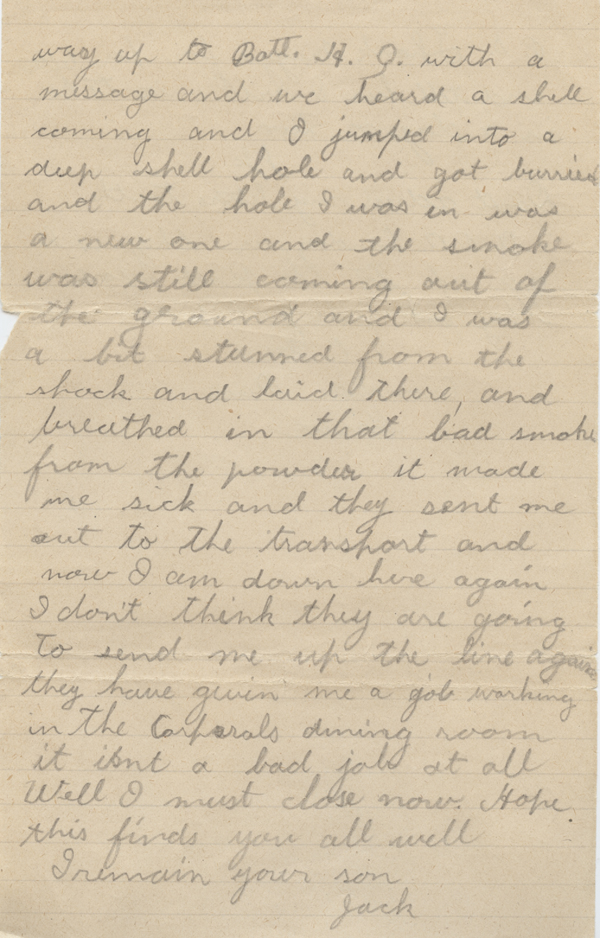 way up to Batt. H. Q. with a
message and we heard a shell
coming and I jumped into a
deep shell hole and got burried
and the hole I was in was
a new one and the smoke
was still coming out of
the ground and I was
a bit stunned from the
shock and laid there, and
breathed in that bad smoke
from the powder it made
me sick and they sent me
out to the transport and
now I am down here again
I don't think they are going
to send me up the line again
they have given me a job working
in the Corporals dining room
it isnt a bad job at all
Well I must close now. Hope
this finds you all well
I remain your son
Jack